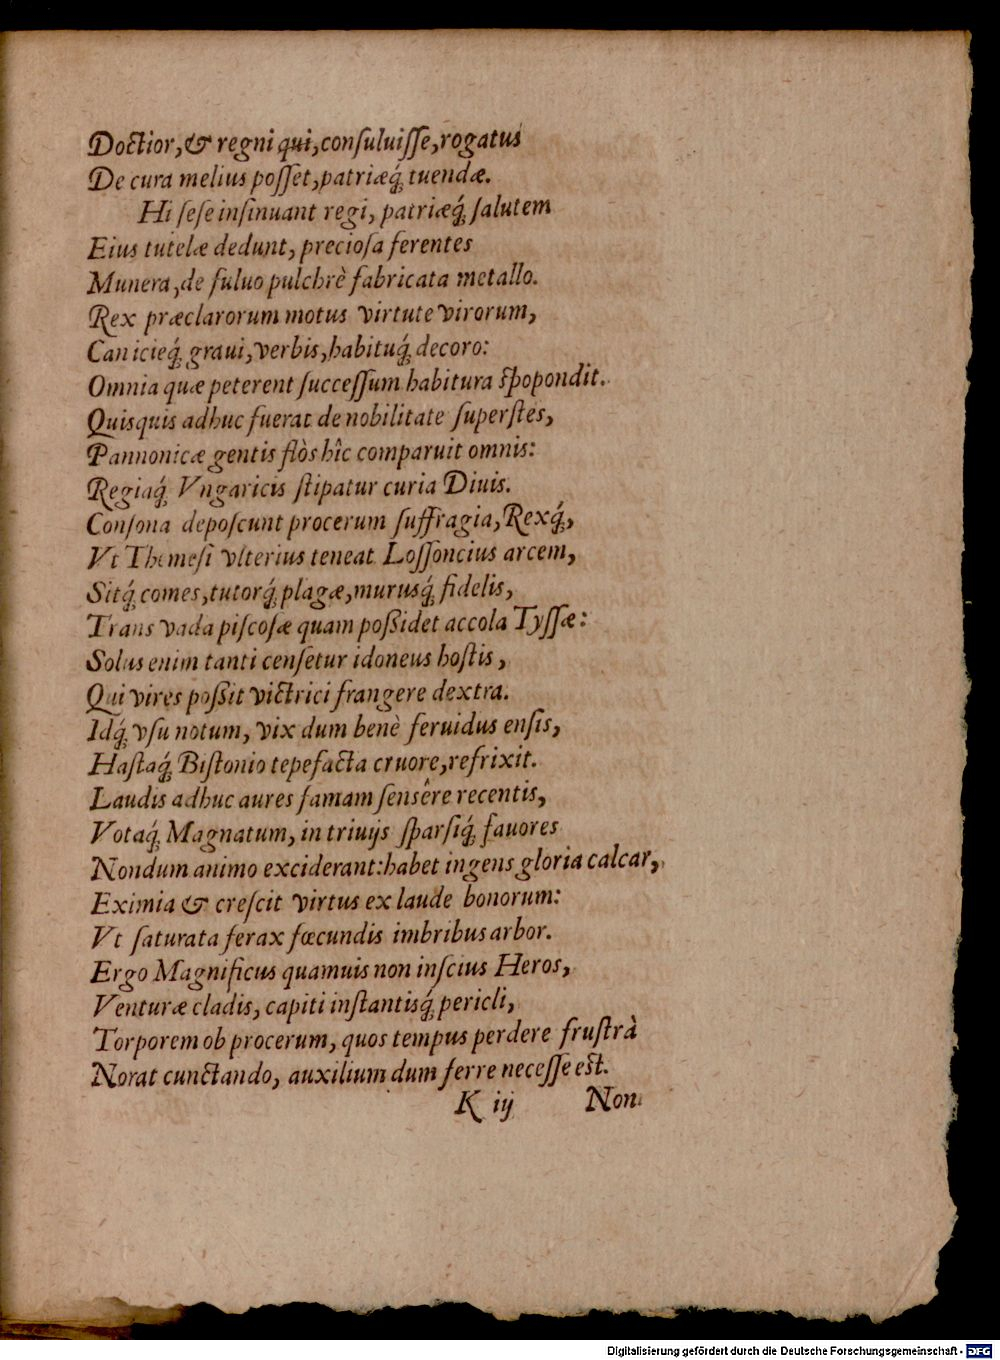 Doctior, & regni qui, conſuluiſſe, rogatus
De cura melius poſſet, patriæq́; tuendæ.
Hi ſeſe inſinuant regi, patriæq́; ſalutem
Eius tutelæ dedunt, precioſa ferentes
Munera, de fuluo pulchrè fabricata metallo.
Rex præclarorum motus virtute virorum,
Canicieq́; graui, verbis, habituq́; decoro:
Omnia quæ peterent ſucceſſum habitura ſpopondit.
Quisquis adhuc fuerat de nobilitate ſuperſtes,
Pannonicæ gentis flòs hîc comparuit omnis:
Regiaq́; Vngaricis ſtipatur curia Diuis.
Conſona depoſcunt procerum ſuffragia, Rexq́;,
Vt Themeſi vlterius teneat Loſſoncius arcem,
Sitq́; comes, tutorq́; plagæ, murusq́; fidelis,
Trans vada piſcoſæ quam poßidet accola Tyſſæ:
Solus enim tanti cenſetur idoneus hoſtis,
Qui vires poßit victrici frangere dextra.
Idq́; vſu notum, vix dum benè feruidus enſis,
Haſtaq́; Biſtonio tepefacta cruore, refrixit.
Laudis adhuc aures famam ſensêre recentis,
Votaq́; Magnatum, in triuijs ſparſiq́; fauores
Nondum animo exciderant: habet ingens gloria calcar,
Eximia & creſcit virtus ex laude bonorum:
Vt ſaturata ferax fœcundis imbribus arbor.
Ergo Magnificus quamuis non inſcius Heros,
Venturæ cladis, capiti inſtantisq́; pericli,
Torporem ob procerum, quos tempus perdere fruſtrà
Norat cunctando, auxilium dum ferre neceſſe eſt.
K iij Non
Digitalisierung gefördert durch die Deutsche Forschungsgemeinschaft - DFG